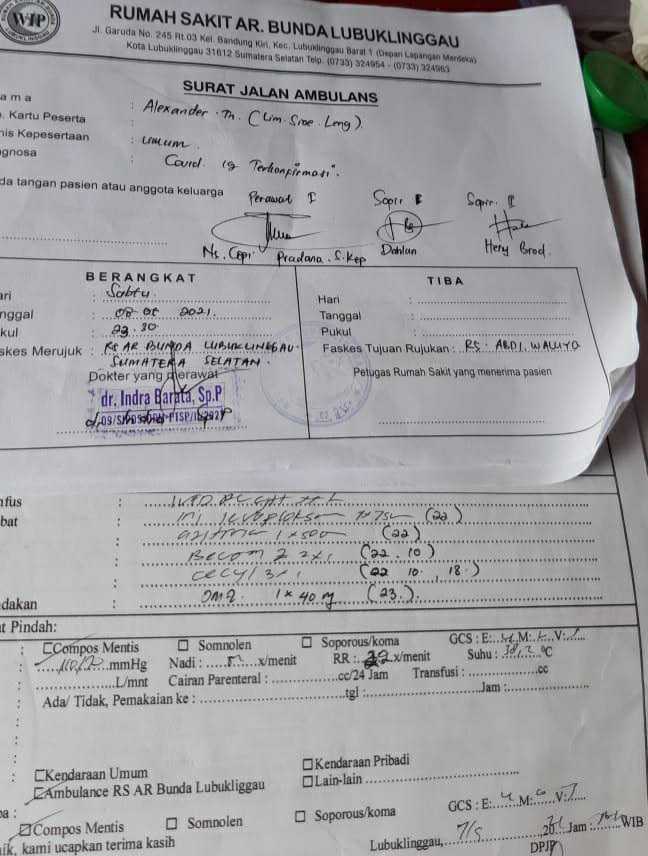 WIP
RUMAH SAKIT AR. BUNDA LUBUKLINGGAU
Jl. Garuda No. 245 Rt.03 Kel. Bandung Kiri, Kec. Lubuklinggau Barat 1 (Depan Lapangan Merdeka)
Kota Lubuklinggau 31612 Sumatera Selatan Telp. (0733) 324954 - (0733) 324963
SURAT JALAN AMBULANS
ama : Alexander . Th. (Lim. Sioe. Leng).
. Kartu Peserta :
nis Kepesertaan : umum.
gnosa : Covid. 19 Terkonfirmasi".
da tangan pasien atau anggota keluarga
Perawat I
Sopir I
Sopir. II
Ns. Cepi Pradana. S.Kep
Dahlan
Hery Brod.
BERANGKAT
TIBA
ari : Sabtu.
Hari :
nggal : 08 05 2021.
Tanggal :
kul : 23.30
Pukul :
skes Merujuk : RS AR BUNDA LUBUKLINGGAU.
SUMATERA SELATAN.
Faskes Tujuan Rujukan : RS. ABDI. WALUYO
Dokter yang merawat
Petugas Rumah Sakit yang menerima pasien
dr. Indra Barata, Sp.P
nfus :
bat : inj levofloksa 1x750 (22)
azitrio 1x500 (22)
Becom Z 2x1 (22.10)
cecyl 3x1 (22 10. 18.)
dakan : OMZ. 1x40 mg (23.)
t Pindah:
: Compos Mentis Somnolen Soporous/koma GCS : E: M: V:
: mmHg Nadi : x/menit RR : 22 x/menit Suhu : °C
: L/mnt Cairan Parenteral : cc/24 Jam Transfusi : cc
: Ada/ Tidak, Pemakaian ke : tgl : Jam :
: Kendaraan Umum Kendaraan Pribadi
Ambulance RS AR Bunda Lubukliggau Lain-lain
GCS : E: 4 M: 6 V:
a :
Compos Mentis Somnolen Soporous/koma
ik, kami ucapkan terima kasih
Lubuklinggau, 7/5 20 Jam WIB
DPJP